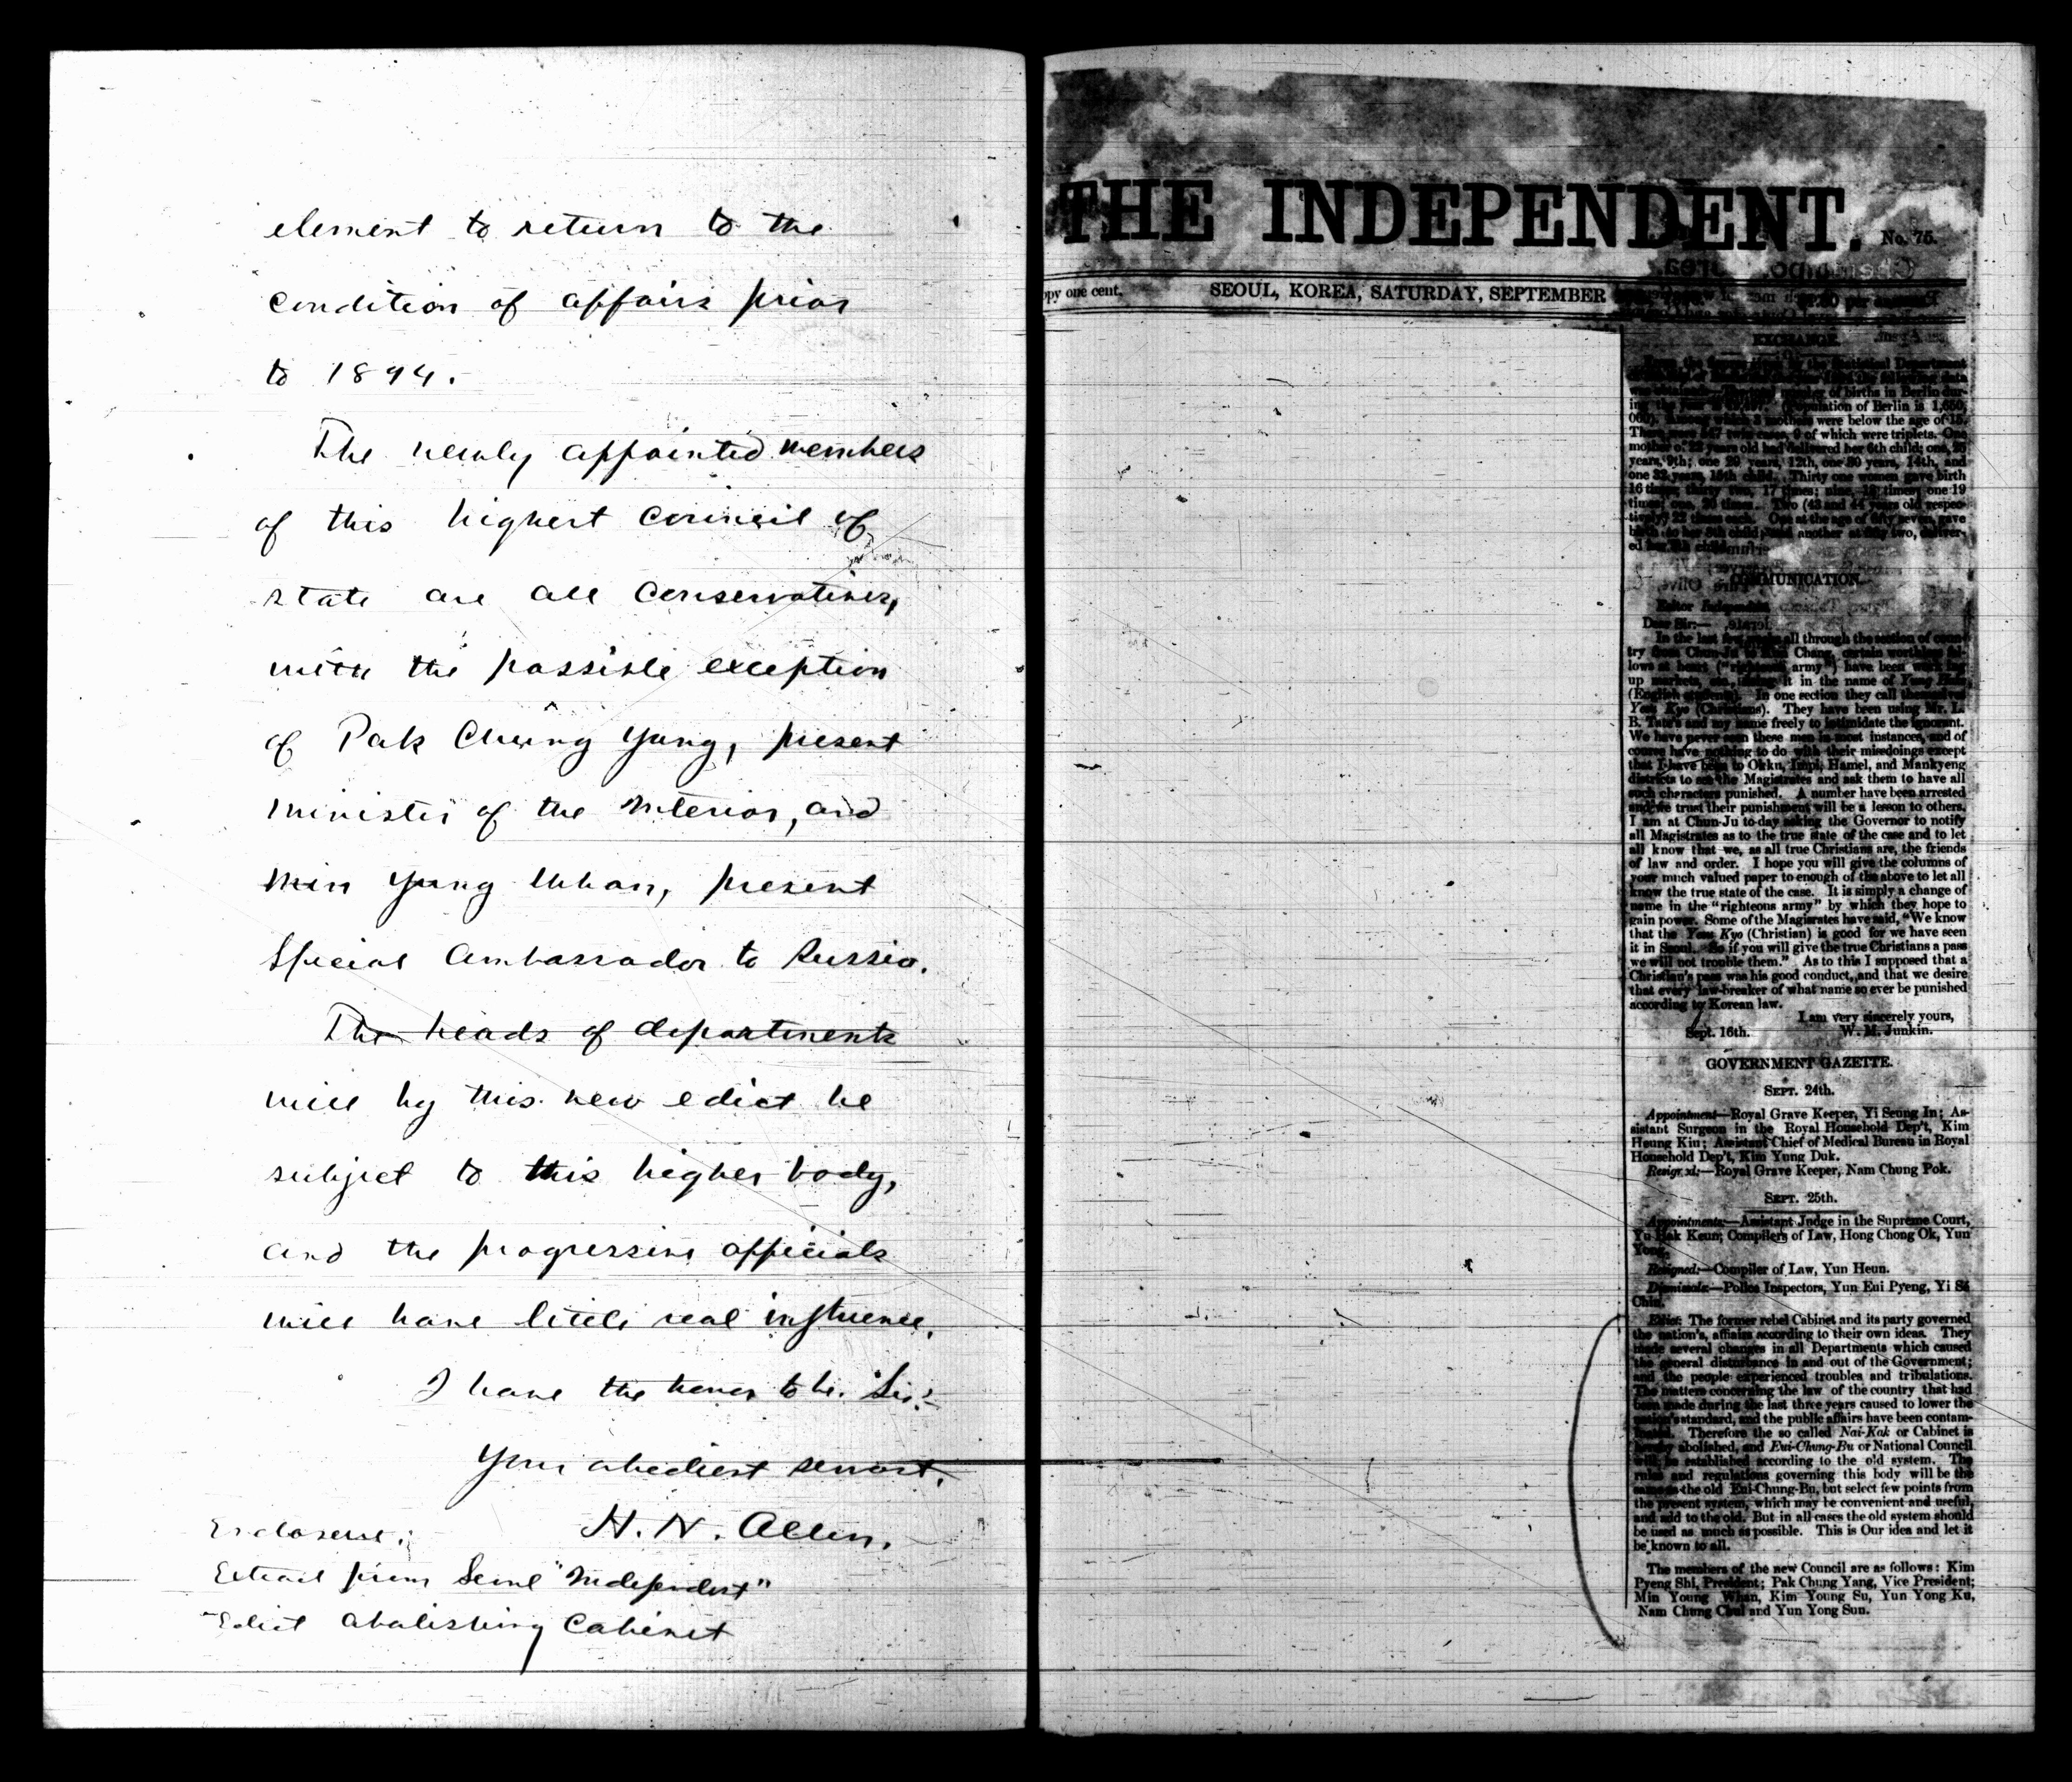 element to return to the
condition of affairs prior
to 1894.
The newly appointed members
of this highest council of
state are all conservatives,
with the possible exception
of Pak Chung Yang, present
minister of the Interior, and
Min Yung Whan, present
Special Ambassador to Russia.
The heads of departments
will by this new edict be
subject to this higher body,
and the progressive officials
will have little real influence.
I have the honor to be, Sir:-
Your obedient servant,
H. N. Allen.
Enclosure:
Extract from Seoul "Independent"
Edict abolishing Cabinet
THE INDEPENDENT.
No. 75.
opy one cent.
SEOUL, KOREA, SATURDAY, SEPTEMBER
per annum
EXCHANGE.
by the Statistical Department
of births in Berlin dur-
ing the year Population of Berlin is 1,650,
000). mothers were below the age of 15.
There were 9 of which were triplets. One
mother of 23 years old had delivered her 6th child; one, 25
years, 9th; one 29 years, 12th, one 30 years, 14th, and
one 32 years, 15th child. Thirty one women gave birth
16 times; thirty two, 17 times; nine, 18 times; one 19
times; one, 20 times. Two (43 and 44 years old respec-
tively) 22 times each. One at the age of fifty seven, gave
birth to her 8th child, and another at fifty two, deliver-
ed her child.
COMMUNICATION.
Editor Independent
Dear Sir:—
In the last few weeks all through the section of coun-
try from Chun-Ju to Chang, certain worthless fel-
lows at heart ("righteous army") have been working
up markets, etc., doing it in the name of Yung
(English students). In one section they call themselves
Yesu Kyo (Christians). They have been using Mr. L.
B. Tate's and my name freely to intimidate the ignorant.
We have never seen these men in most instances, and of
course have nothing to do with their misdoings except
that I have been to Okku, Impi, Hamel, and Mankyeng
districts to see the Magistrates and ask them to have all
such characters punished. A number have been arrested
and we trust their punishment will be a lesson to others.
I am at Chun-Ju to-day asking the Governor to notify
all Magistrates as to the true state of the case and to let
all know that we, as all true Christians are, the friends
of law and order. I hope you will give the columns of
your much valued paper to enough of the above to let all
know the true state of the case. It is simply a change of
name in the "righteous army" by which they hope to
gain power. Some of the Magistrates have said, "We know
that the Yesu Kyo (Christian) is good for we have seen
it in Seoul. So if you will give the true Christians a pass
we will not trouble them." As to this I supposed that a
Christian's pass was his good conduct, and that we desire
that every law-breaker of what name so ever be punished
according to Korean law.
I am very sincerely yours,
Sept. 16th. W. M. Junkin.
GOVERNMENT GAZETTE.
SEPT. 24th.
Appointment—Royal Grave Keeper, Yi Seung In; As-
sistant Surgeon in the Royal Household Dep't, Kim
Heung Kiu; Assistant Chief of Medical Bureau in Royal
Household Dep't, Kim Yung Duk.
Resigned:—Royal Grave Keeper, Nam Chung Pok.
SEPT. 25th.
Appointments:—Assistant Judge in the Supreme Court,
Yu Hak Keun; Compilers of Law, Hong Chong Ok, Yun
Yong.
Resigned:—Compiler of Law, Yun Heun.
Dismissals:—Police Inspectors, Yun Eui Pyeng, Yi Se
Chin.
Edict: The former rebel Cabinet and its party governed
the nation's, affairs according to their own ideas. They
made several changes in all Departments which caused
the general disturbance in and out of the Government;
and the people experienced troubles and tribulations.
The matters concerning the law of the country that had
been made during the last three years caused to lower the
nation's standard, and the public affairs have been contam-
inated. Therefore the so called Nai-Kak or Cabinet is
hereby abolished, and Eui-Chung-Bu or National Council
will be established according to the old system. The
rules and regulations governing this body will be the
same as the old Eui-Chung-Bu, but select few points from
the present system, which may be convenient and useful,
and add to the old. But in all cases the old system should
be used as much as possible. This is Our idea and let it
be known to all.
The members of the new Council are as follows: Kim
Pyeng Shi, President; Pak Chung Yang, Vice President;
Min Young Whan, Kim Young Su, Yun Yong Ku,
Nam Chung Chul and Yun Yong Sun.